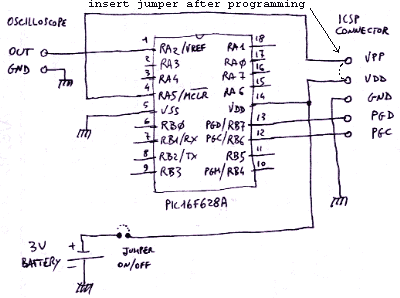 insert jumper after programming
OSCILLOSCOPE
ICSP
CONNECTOR
OUT
GND
1
2
3
4
5
6
7
8
9
RA2/VREF
RA3
RA4
RA5/MCLR
VSS
RB0
RB1/RX
RB2/TX
RB3
18
17
16
15
14
13
12
11
10
RA1
RA0
RA7
RA6
VDD
PGD/RB7
PGC/RB6
RB5
PGM/RB4
VPP
VDD
GND
PGD
PGC
PIC16F628A
3V
BATTERY
+
JUMPER
ON/OFF